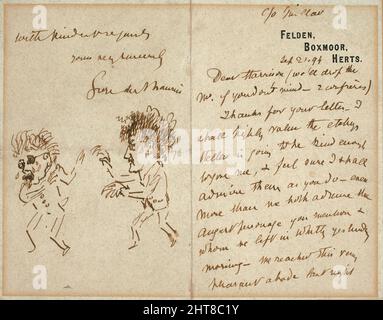 with kindest regards
yours very sincerely
George du Maurier
FELDEN,
BOXMOOR,
HERTS.
Sep 21. 94
Dear Harrison (we'll drop the
Mr. if you don't mind – 2 confrères)
Thanks for your letter – I
shall highly value the etchings
is going to be kind enough
to give me, & feel sure I shall
admire them as you do – even
more than we both admire the
august personage you mention &
whom we left in Whitby yesterday
morning – We reached this very
pleasant abode last night
alamy
Image ID: 2HT8C1Y
www.alamy.com